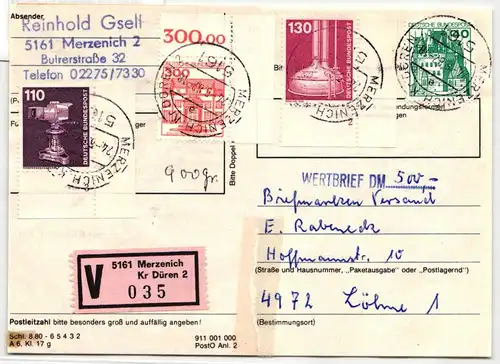 Absender
Reinhold Gsell
5161 Merzenich 2
Butrerstraße 32
Telefon 02275/7330
300.00
110
DEUTSCHE BUNDESPOST
DEUTSCHE BUNDESPOST
130
DEUTSCHE BUNDESPOST
DEUTSCHE BUNDESPOST
40
MERZENICH
5161
MERZENICH
MERZENICH
MERZENICH
900 gr.
Bitte Doppel
WERTBRIEF DM 500,-
Briefmarken Versand
E. Rabeneck
Hoffmannstr. 10
(Straße und Hausnummer, „Paketausgabe" oder „Postlagernd")
4972 Löhne 1
(Bestimmungsort)
V
5161 Merzenich
Kr Düren 2
035
Postleitzahl bitte besonders groß und auffällig angeben!
Schl. 8.80 - 6 5 4 3 2
A 6, Kl. 17 g
911 001 000
PostO Anl. 2